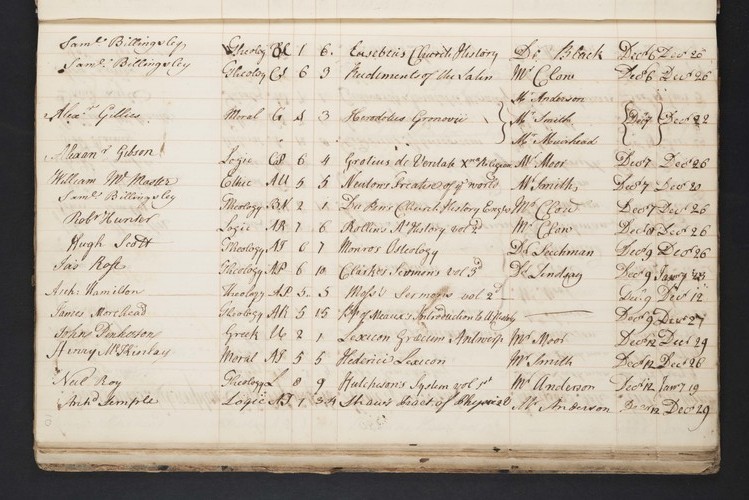 Saml Billingsley Theology BE 1 6 Eusebius Church History Dr Black Decr 6 Decr 26
Saml Billingsley Theology 6 3 Rudements of the Latin Mr Clow Decr 6 Decr 26
Mr Anderson
Alexr Gillies Moral G 1 3 Herodotus Gronovii Mr Smith Decr 7 Decr 22
Mr Muirhead
Alexanr Gibson Logic 6 4 Grotius de Veritate Xnæ Religion Mr Moor Decr 7 Decr 26
William Mc Master Ethic AU 5 5 Neutons Treatise of ye world Mr Smith Decr 7 Decr 20
Saml Billingsley Theology BN 2 1 Du Pins Church History Mr Clow Decr 7 Decr 26
Robt Hunter Logic AR 7 6 Rollins At History vol 2d Mr Clow Decr 8 Decr 26
Hugh Scott Theology 6 7 Monros Osteology Dr Leechman Decr 9 Decr 26
Jas Ross Theology AP 6 10 Clarkes Sermons vol 5d Dr Lindsay Decr 9 Janry 23
Arch: Hamilton Theology AP 5 5 Moss's Sermons vol 2d Decr 9 Decr 12
James Morehead Theology AR 5 15 Bp of Meaux's Introduction to Decr 9 Decr 27
John Dickeson Greek U 2 1 Lexicon Græcum Antwerp Mr Moor Decr 12 Decr 29
Henry McKinlay Moral 5 5 Hederici Lexicon Mr Smith Decr 12 Decr 26
Neil Roy Theology L 8 9 Hutcheson's System vol 1st Mr Anderson Decr 12 Janry 19
Archd Semple Logic 1 of Physic Mr Anderson Decr 12 Decr 29